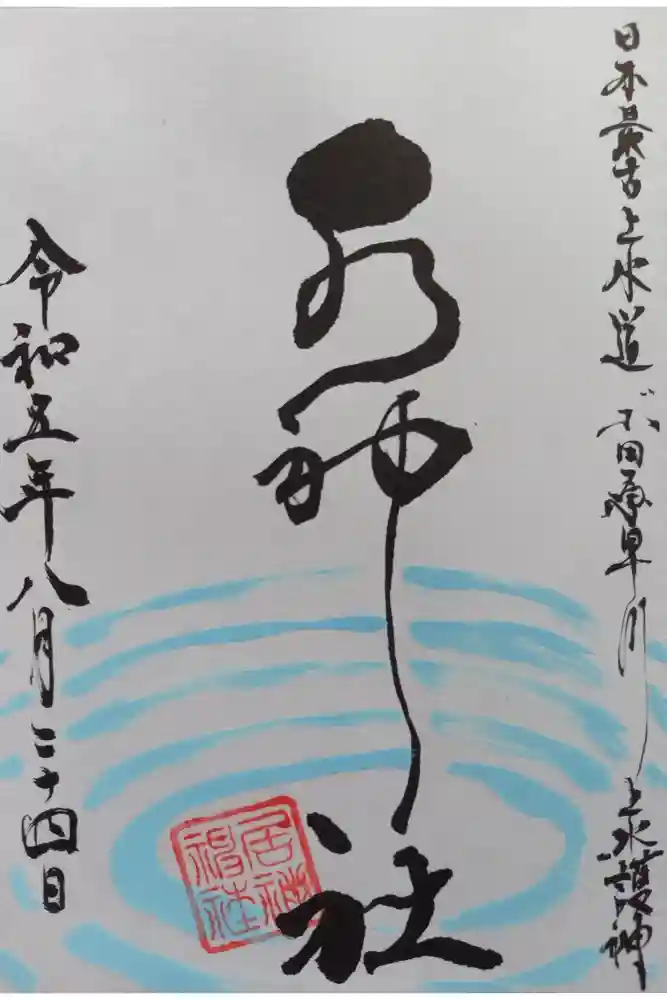 日本最古上水道 小田原早川上水護神
水神社
令和五年八月二十四日
居神
神社